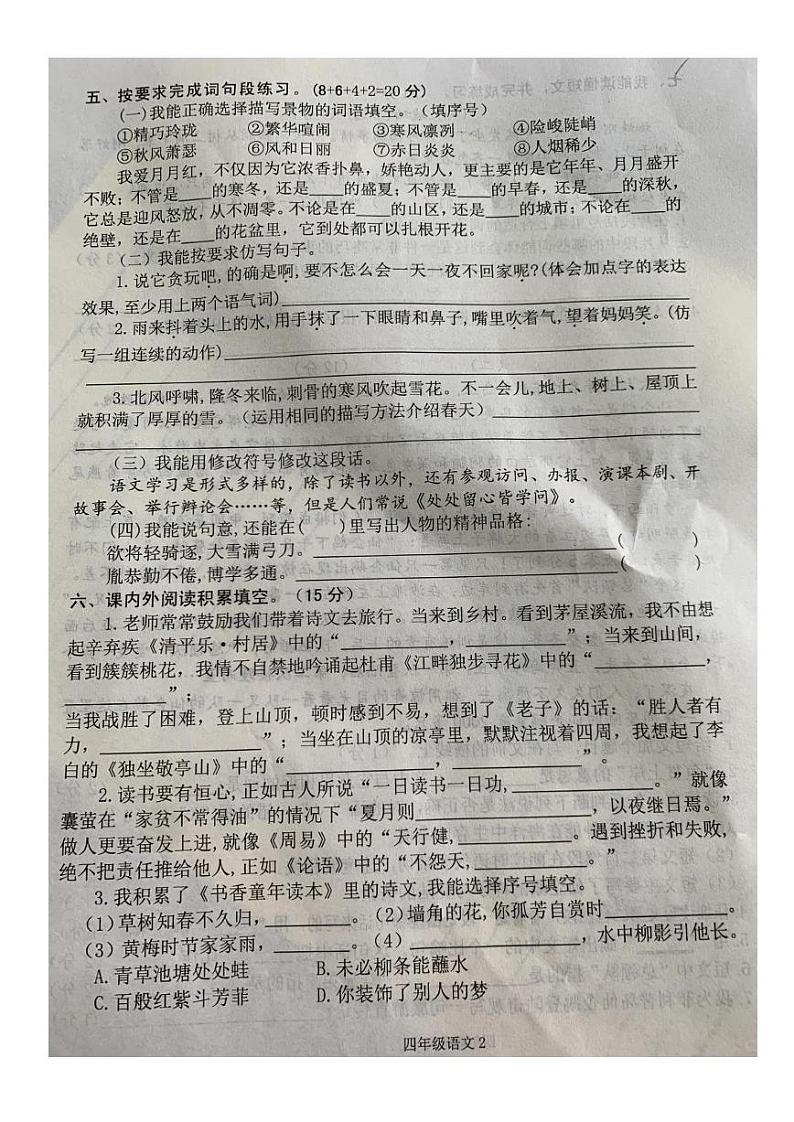 五、按要求完成词句段练习。(8+6+4+2=20 分)
(一)我能正确选择描写景物的词语填空。（填序号）
①精巧玲珑 ②繁华喧闹 ③寒风凛冽 ④险峻陡峭
⑤秋风萧瑟 ⑥风和日丽 ⑦赤日炎炎 ⑧人烟稀少
我爱月月红，不仅因为它浓香扑鼻，娇艳动人，更主要的是它年年、月月盛开
不败；不管是____的寒冬，还是____的盛夏；不管是____的早春，还是____的深秋，
它总是迎风怒放，从不凋零。不论是在____的山区，还是____的城市；不论在____的
绝壁，还是在____的花盆里，它到处都可以扎根开花。
(二）我能按要求仿写句子。
1.说它贪玩吧,的确是啊,要不怎么会一天一夜不回家呢?(体会加点字的表达
效果,至少用上两个语气词)____
2.雨来抖着头上的水,用手抹了一下眼睛和鼻子,嘴里吹着气,望着妈妈笑。(仿
写一组连续的动作)____
3.北风呼啸,隆冬来临,刺骨的寒风吹起雪花。不一会儿,地上、树上、屋顶上
就积满了厚厚的雪。（运用相同的描写方法介绍春天）____
(三）我能用修改符号修改这段话。
语文学习是形式多样的，除了读书以外，还有参观访问、办报、演课本剧、开
故事会、举行辩论会……等，但是人们常说《处处留心皆学问》。
(四)我能说句意,还能在( )里写出人物的精神品格:
欲将轻骑逐,大雪满弓刀。____( )
胤恭勤不倦,博学多通。____( )
六、课内外阅读积累填空。（15 分）
1.老师常常鼓励我们带着诗文去旅行。当来到乡村。看到茅屋溪流，我不由想
起辛弃疾《清平乐·村居》中的“____，____”；当来到山间，
看到簇簇桃花，我情不自禁地吟诵起杜甫《江畔独步寻花》中的“____，
____”；
当我战胜了困难，登上山顶，顿时感到不易，想到了《老子》的话：“胜人者有
力，____”；当坐在山顶的凉亭里，默默注视着四周，我想起了李
白的《独坐敬亭山》中的“____，____。
2.读书要有恒心,正如古人所说“一日读书一日功,____。”就像
囊萤在“家贫不常得油”的情况下“夏月则____，以夜继日焉。”
做人更要奋发上进,就像《周易》中的“天行健,____。遇到挫折和失败,
绝不把责任推给他人,正如《论语》中的“不怨天,____。”
3.我积累了《书香童年读本》里的诗文,我能选择序号填空。
(1)草树知春不久归，____。(2)墙角的花,你孤芳自赏时____。
(3）黄梅时节家家雨，____。(4）____，水中柳影引他长。
A.青草池塘处处蛙 B.未必柳条能蘸水
C.百般红紫斗芳菲 D.你装饰了别人的梦
四年级语文 2